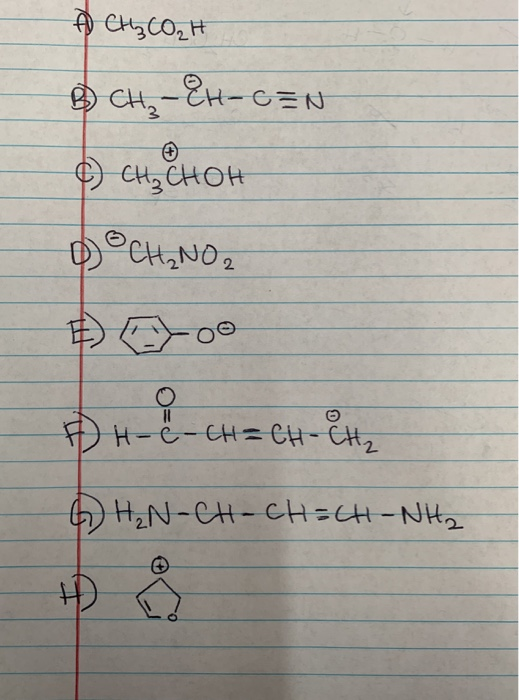 A) CH₃CO₂H
B) CH₃-C⊖H-C≡N
C) CH₃C⊕HOH
D) ⊖CH₂NO₂
E) -O⊖
F) H-C(=O)-CH=CH-C⊖H₂
G) H₂N-CH-CH=CH-NH₂
H) ⊕ O